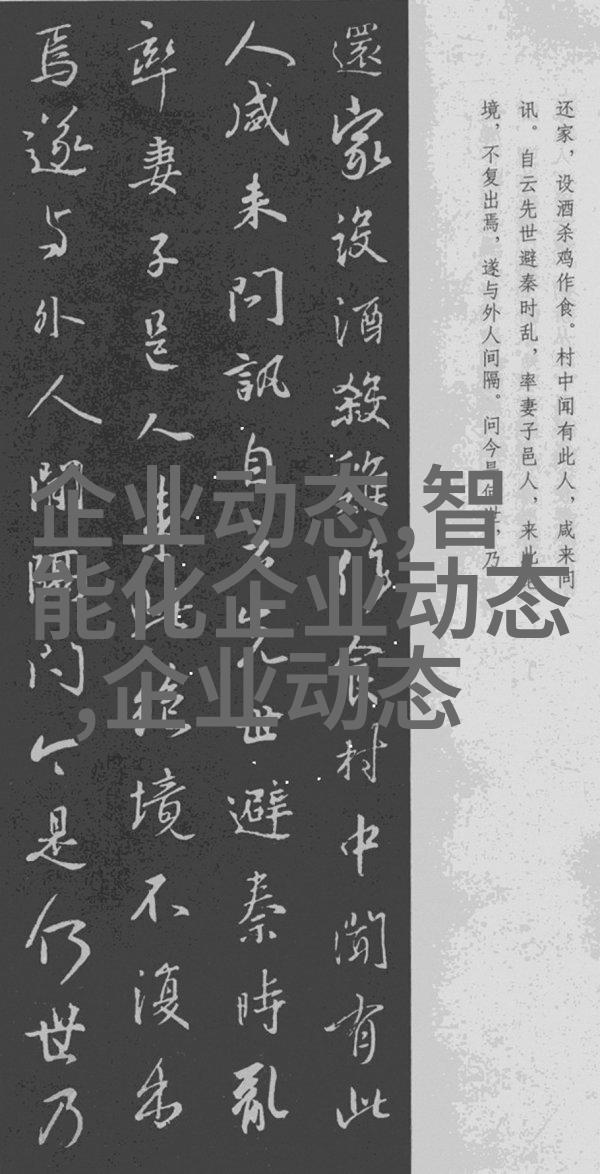 还家，设酒杀鸡作食。村中闻有此人，咸来问
讯。自云先世避秦时乱，率妻子邑人，来此
境，不复出焉，遂与外人间隔。问今是何世，乃
還家設酒殺雞作食村中聞有此
人咸来問訊自云先世避秦時亂
率妻子邑人来此絶境不復出
焉遂与外人間隔問今是何世乃
企业动态,智
能化企业动态
,企业动态